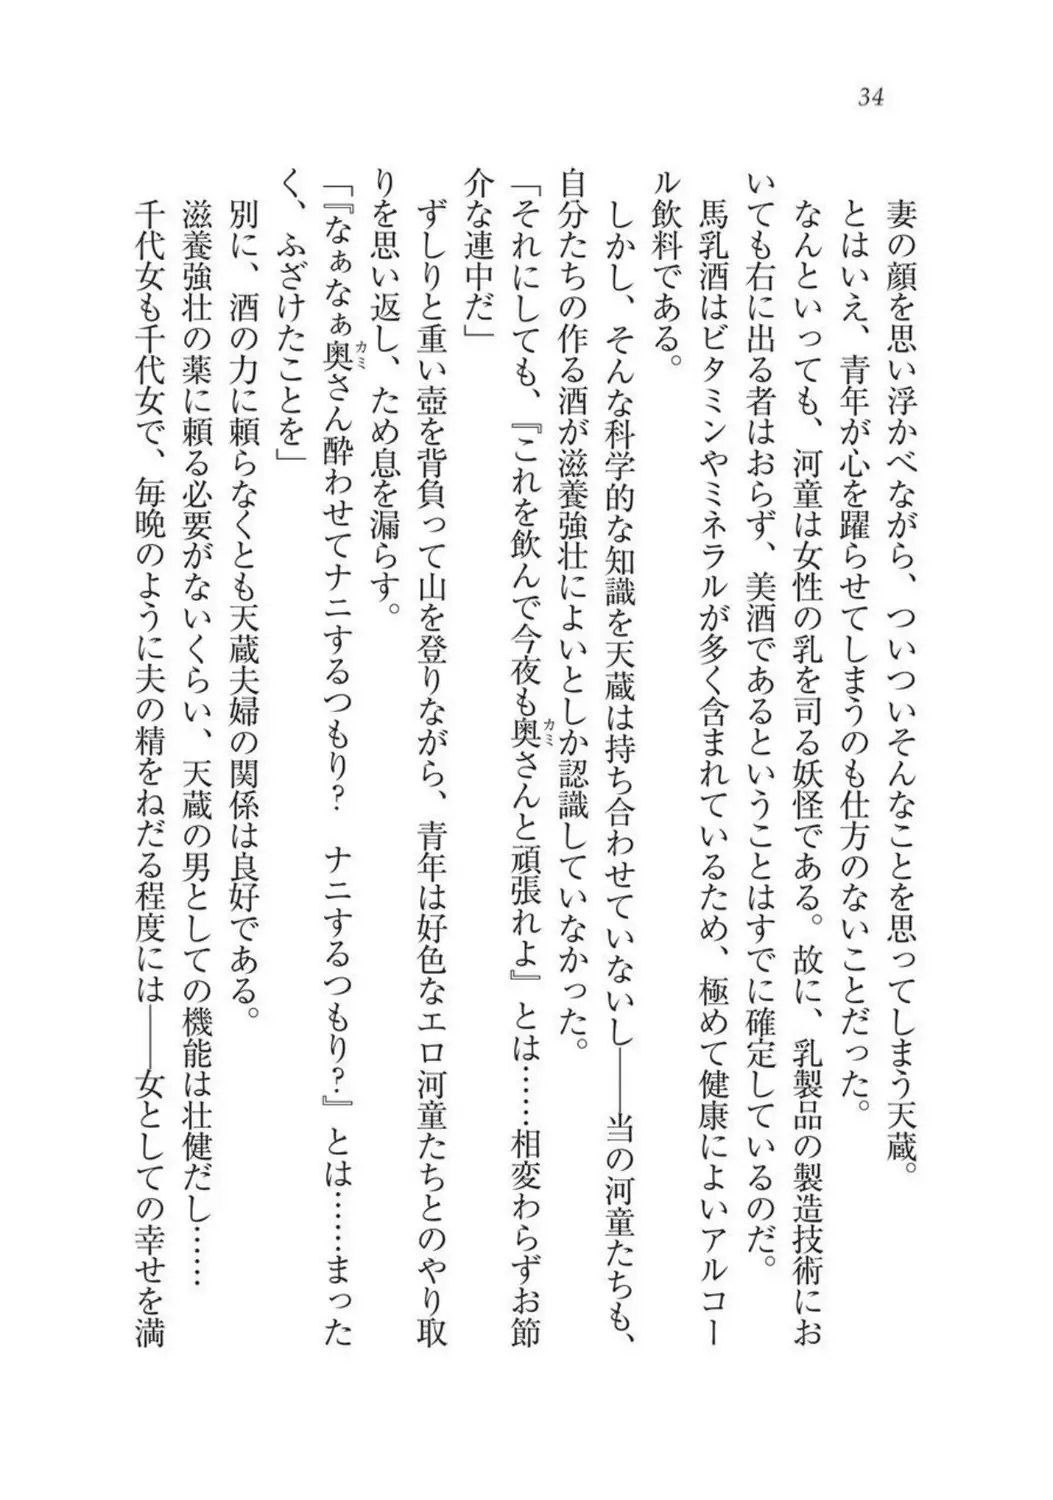 34
妻の顔を思い浮かべながら、ついついそんなことを思ってしまう天蔵。
とはいえ、青年が心を躍らせてしまうのも仕方のないことだった。
なんといっても、河童は女性の乳を司る妖怪である。故に、乳製品の製造技術にお
いても右に出る者はおらず、美酒であるということはすでに確定しているのだ。
馬乳酒はビタミンやミネラルが多く含まれているため、極めて健康によいアルコー
ル飲料である。
しかし、そんな科学的な知識を天蔵は持ち合わせていないし――当の河童たちも、
自分たちの作る酒が滋養強壮によいとしか認識していなかった。
「それにしても、『これを飲んで今夜も奥カミさんと頑張れよ』とは……相変わらずお節
介な連中だ」
ずしりと重い壺を背負って山を登りながら、青年は好色なエロ河童たちとのやり取
りを思い返し、ため息を漏らす。
「『なぁなぁ奥カミさん酔わせてナニするつもり？　ナニするつもり？』とは……まった
く、ふざけたことを」
別に、酒の力に頼らなくとも天蔵夫婦の関係は良好である。
滋養強壮の薬に頼る必要がないくらい、天蔵の男としての機能は壮健だし……
千代女も千代女で、毎晩のように夫の精をねだる程度には――女としての幸せを満